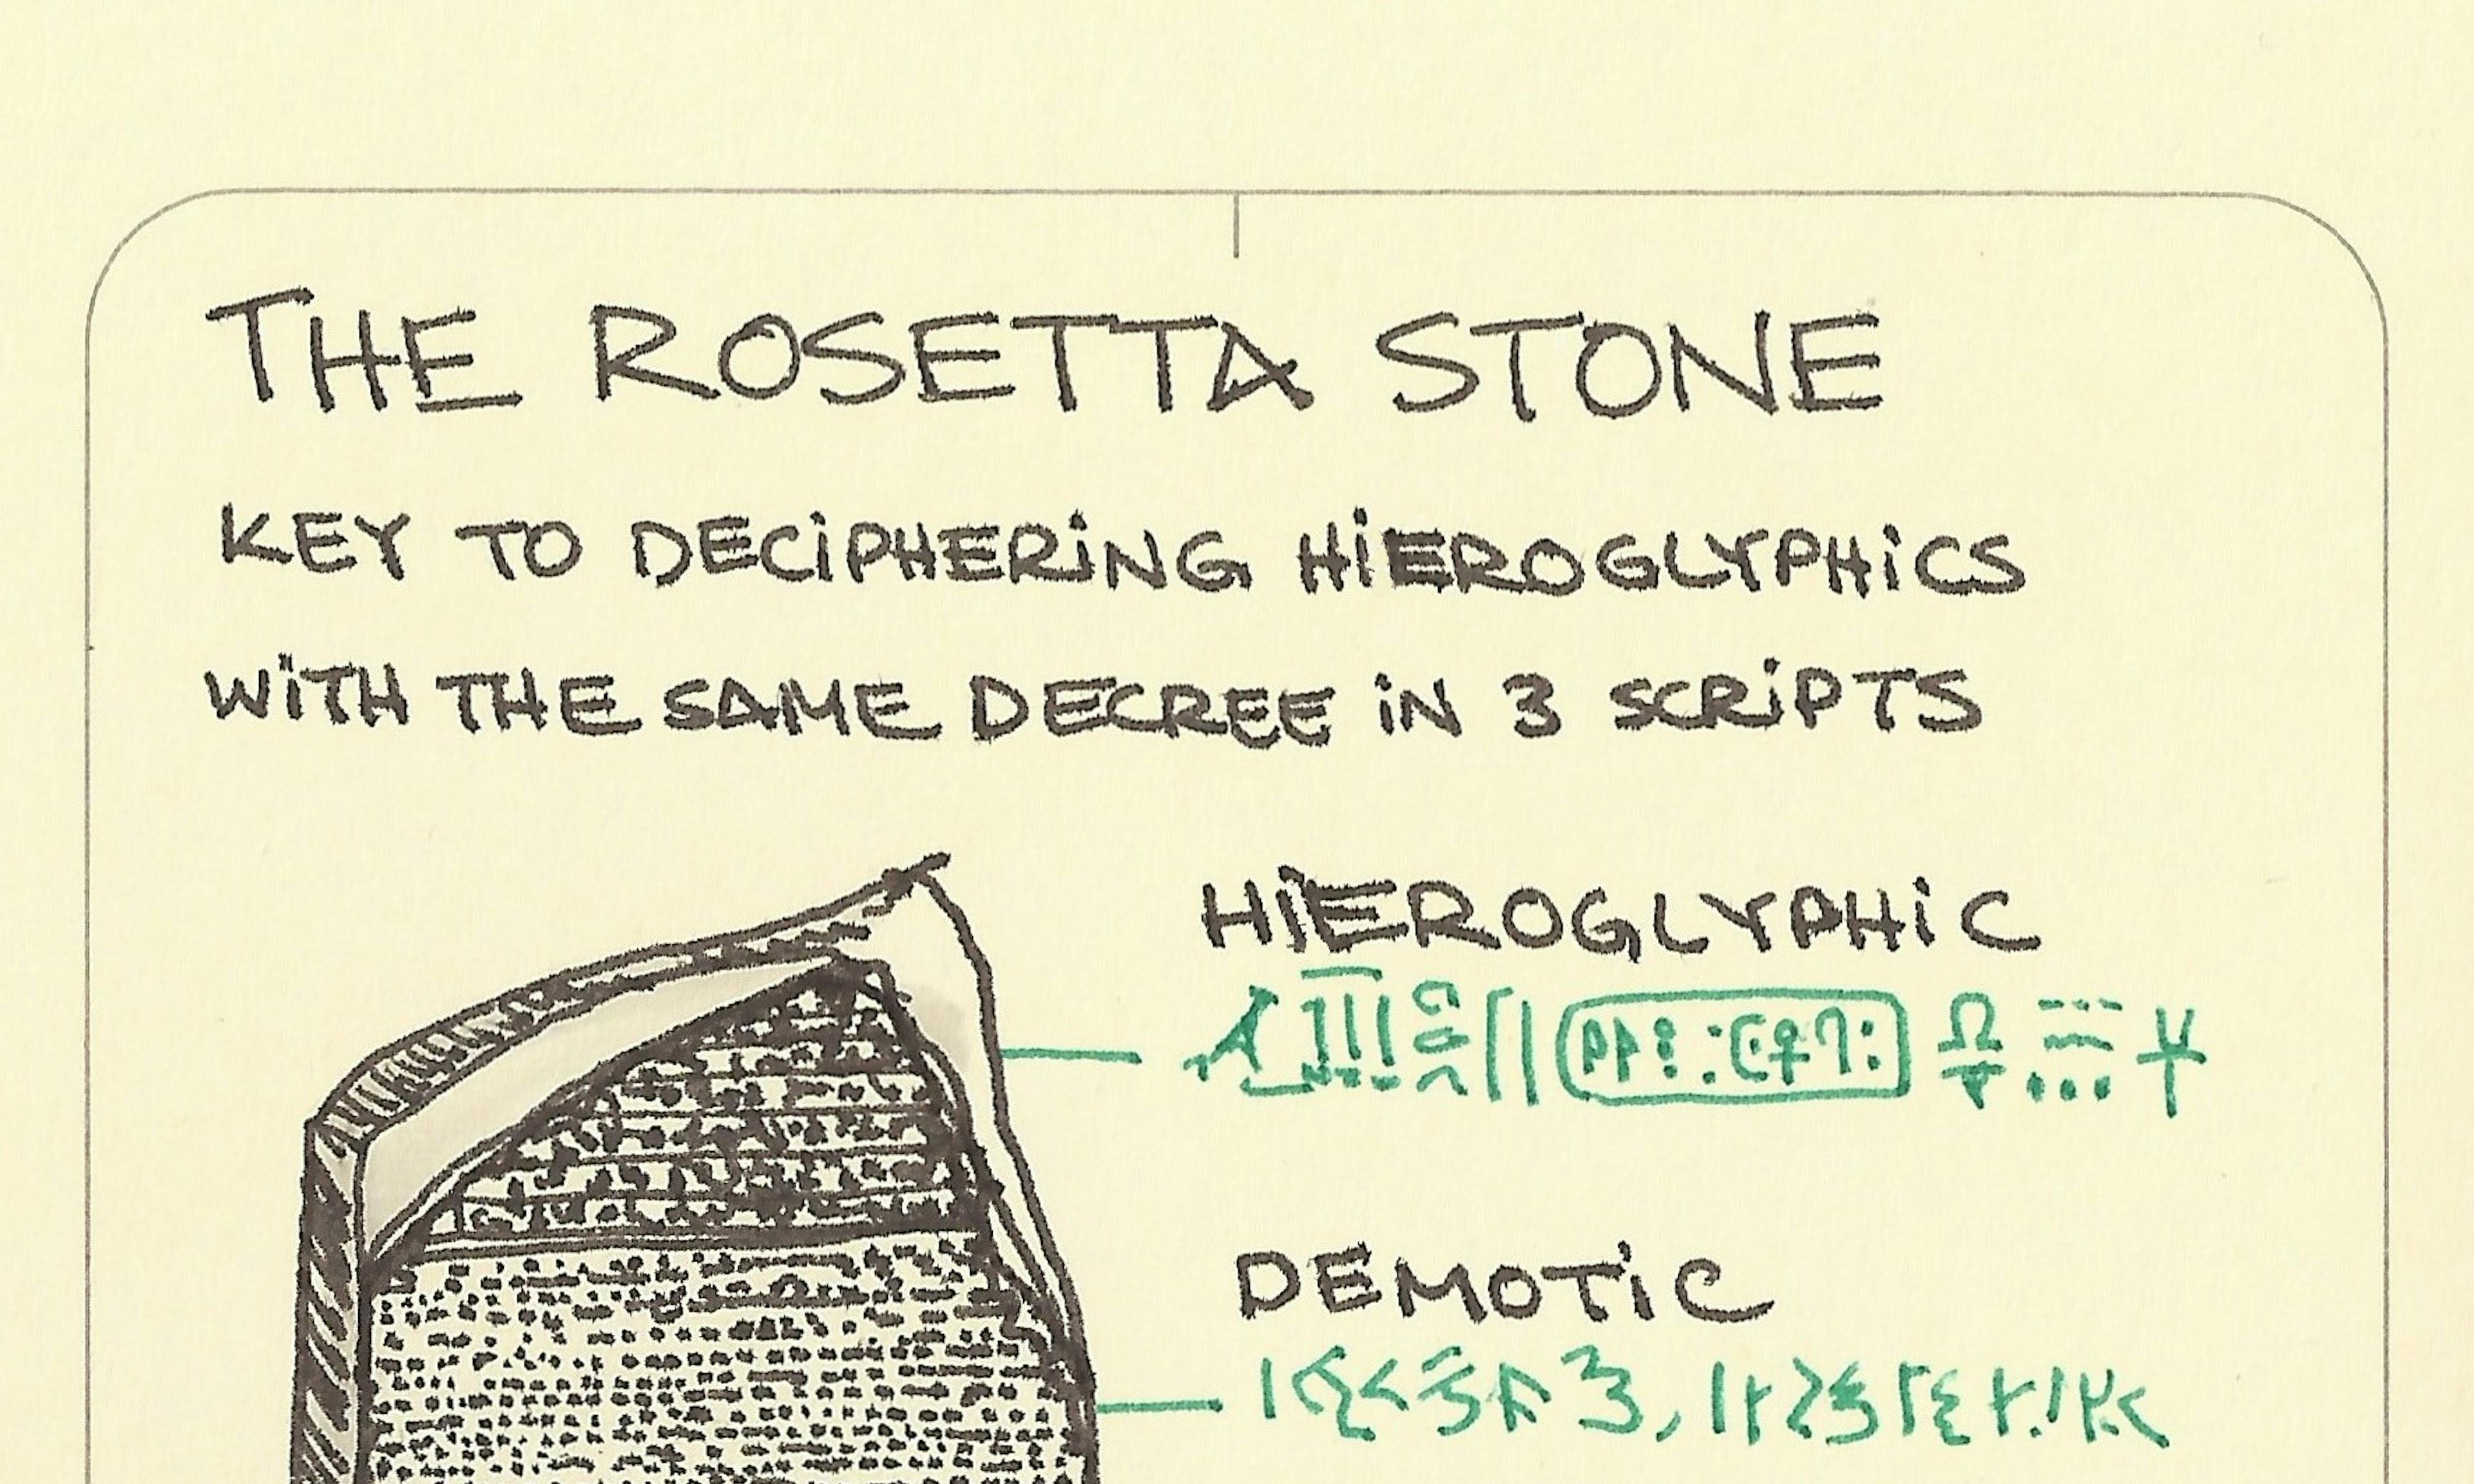 THE ROSETTA STONE
KEY TO DECIPHERING HIEROGLYPHICS
WITH THE SAME DECREE IN 3 SCRIPTS
HIEROGLYPHIC
DEMOTIC